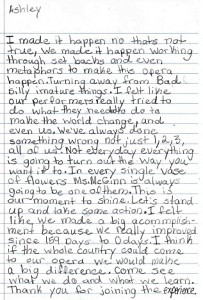 Ashley
I made it happen no thats not
true, We made it happen working
through set backs and even
metaphors to make this opera
happen. Turning away from Bad
silly imature things. I felt like
our performers really tried to
do what they need to do to
make the world change, and
even us. We've always done
something wrong not just 1, 2, 3,
all of us. Not everyday everything
is going to turn out the way you
want it to. In every single vase
of flowers Ms. McGinn is always
going to be one of them. This is
our moment to shine. Let's stand
up and take some action. I felt
like we made a big accomplish-
ment because we really improved
since 159 days to 0 days. I think
if the whole country could come
to our opera we would make
a big difference. Come see
what we do and what we learn.
Thank you for joining the experience